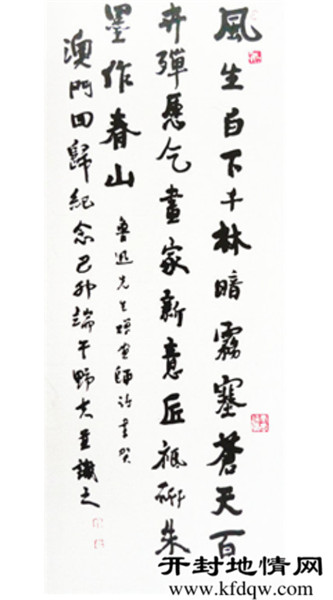 風生白下千林暗霧塞蒼天百
卉殫愿乞畫家新意匠祇研朱
墨作春山
魯迅先生贈畫師詩書賀
澳門回歸紀念己卯端午野夫並識之
开封地情网
www.kfdqw.com